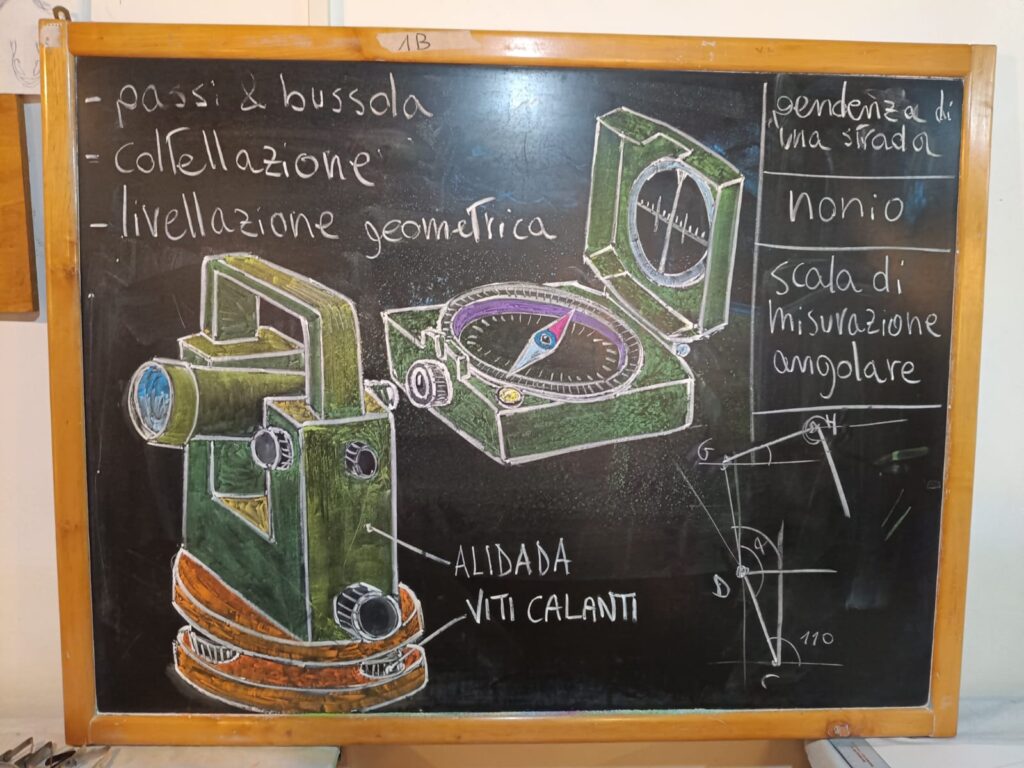 1B
- passi & bussola
- coltellazione
- livellazione geometrica
pendenza di
una strada
nonio
scala di
misurazione
angolare
ALIDADA
VITI CALANTI
G
H
B
110
C